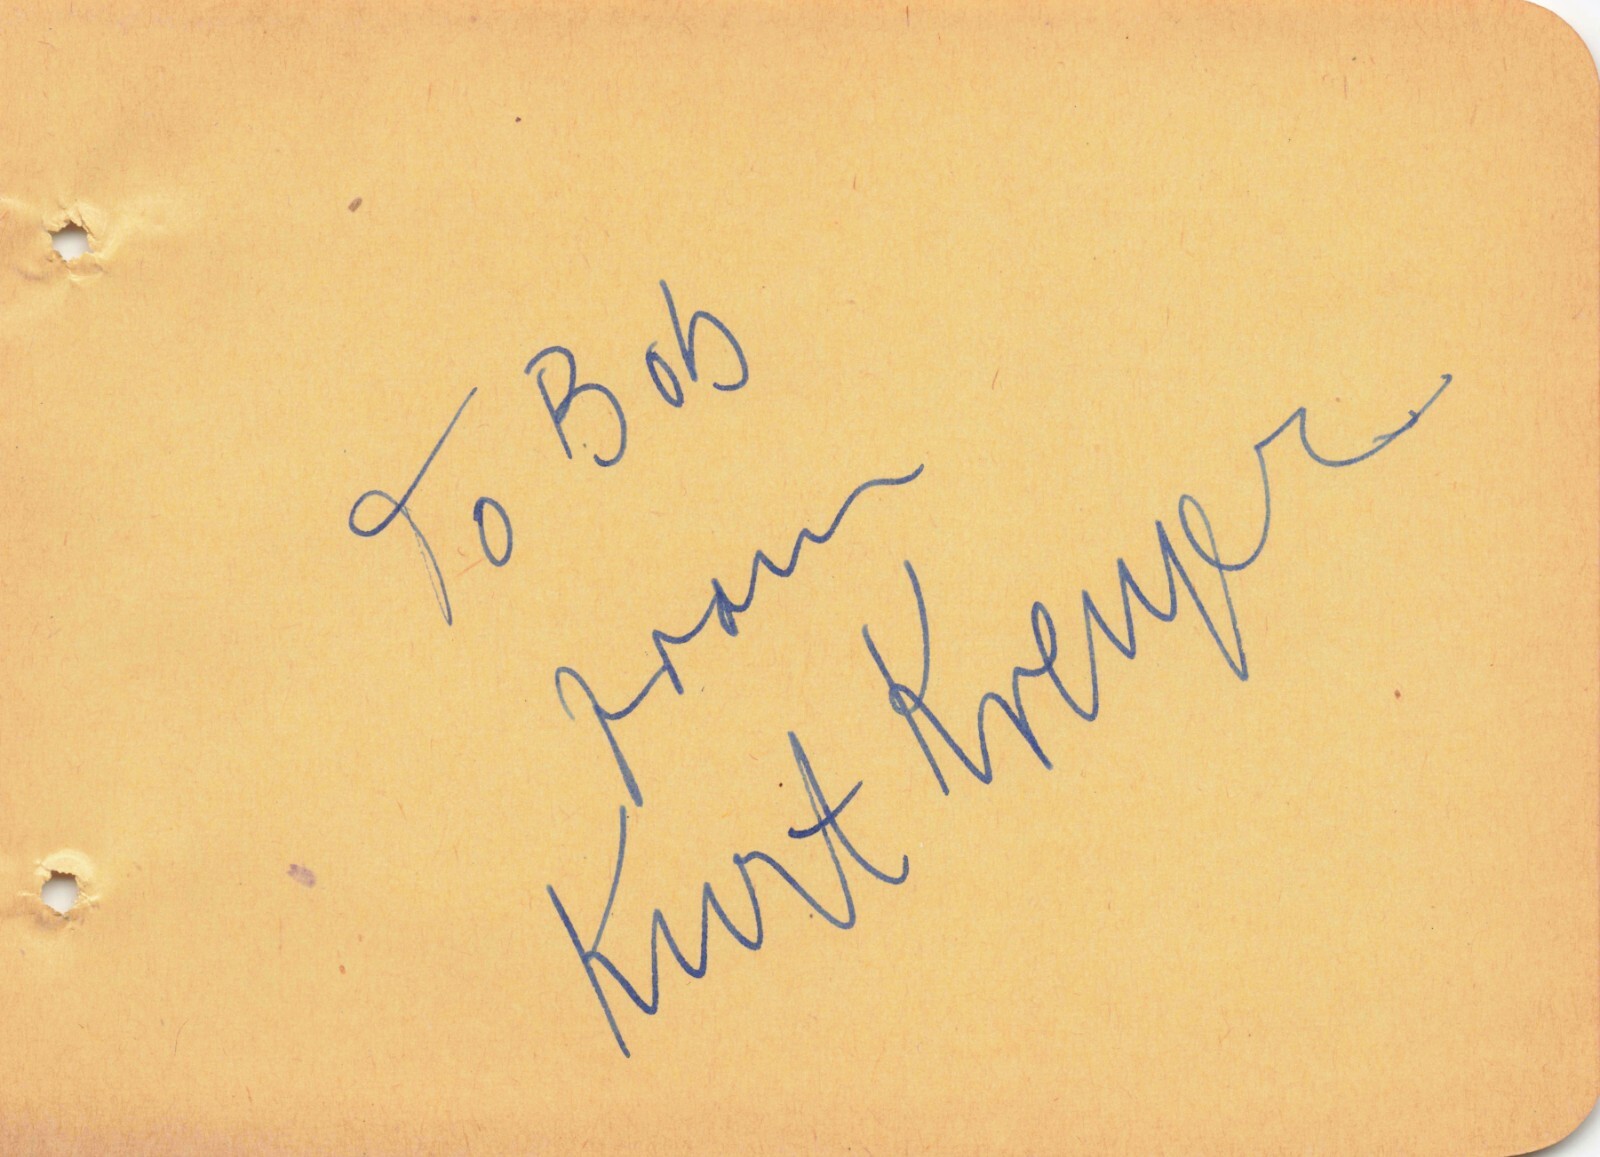 To Bob
from
Kurt Kreuger